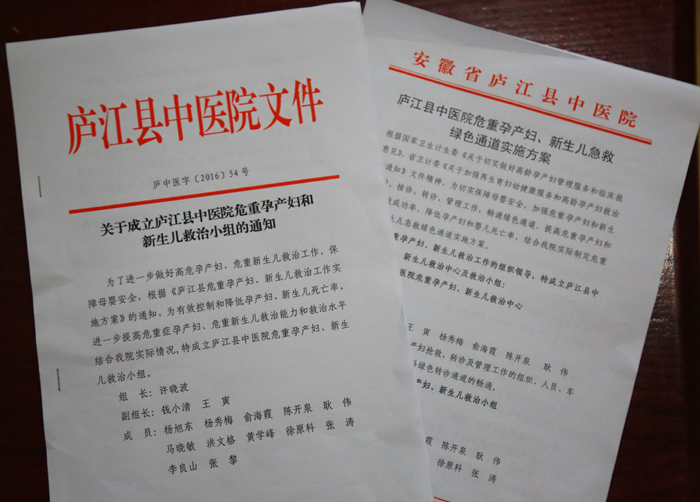 庐江县中医院文件
庐中医字〔2016〕54号
关于成立庐江县中医院危重孕产妇和
新生儿救治小组的通知
为了进一步做好高危孕产妇、危重新生儿救治工作，保
障母婴安全，根据《庐江县危重孕产妇、新生儿救治工作实
施方案》的通知，为有效控制和降低孕产妇、新生儿死亡率，
进一步提高危重症孕产妇、危重新生儿救治能力和救治水平
结合我院实际情况，特成立庐江县中医院危重孕产妇、新生
儿救治小组。
组 长：许晓波
副组长：钱小清 王 寅
成 员：杨旭东 杨秀梅 俞海霞 陈开泉 耿 伟
马晓敏 洪文格 黄学峰 徐原科 张 涛
李良山 张 黎
安徽省庐江县中医院
庐江县中医院危重孕产妇、新生儿急救
绿色通道实施方案
根据国家卫生计生委《关于切实做好高龄孕产妇管理服务和临床救
意见》、省卫计委《关于加强再生育妇幼健康服务和高龄孕产妇救治
通知》文件精神，为切实保障母婴安全，加强危重孕产妇和新
、接诊、转诊、管理工作，畅通绿色通道，提高危重孕产妇和
成功率，降低孕产妇和婴儿死亡率，结合我院实际制定危重
儿急救绿色通道实施方案。
重孕产妇、新生儿救治工作的组织领导，特成立庐江县中
、新生儿救治中心及救治小组：
院危重孕产妇、新生儿救治中心
王 寅 杨秀梅 俞海霞 陈开泉 耿 伟
产妇抢救、转诊及管理工作的组织、人员、车
绿色转诊通道的畅通。
产妇、新生儿救治小组
霞 陈开泉 耿 伟
徐原科 张 涛